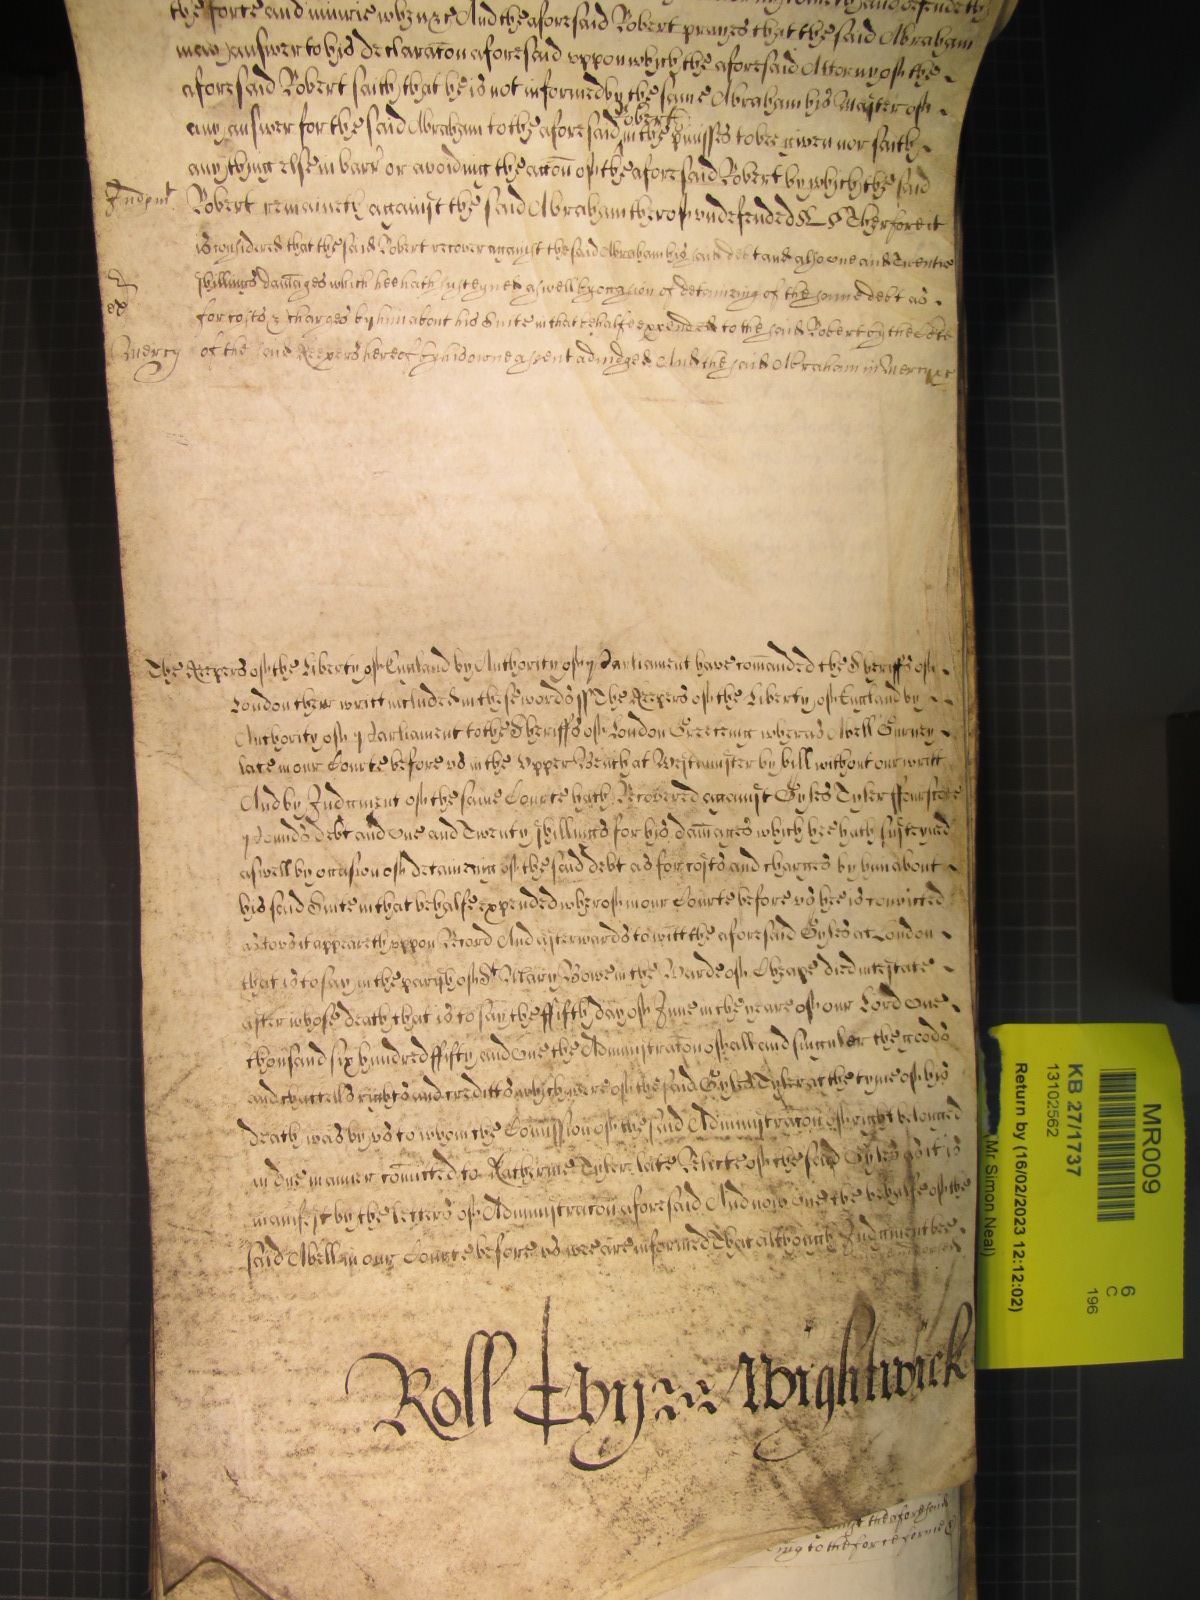 the force and iniurie when &c And the aforesaid Robert prayes that the said Abraham
may answer to his declaracon aforesaid vppon which the aforesaid Attorny of the
aforesaid Robert saith that he is not informed by the same Abraham his Master of
any answer for the said Abraham to the aforesaid Robert in the p'misses to bee given nor saith
any thing else in barr or avoiding the accon of the aforesaid Robert by which the said
Judgmt
Robert remaineth against the said Abraham therof vndefended &c Therfore it
is considered that the said Robert recover against the said Abraham his said debt and also one and Twentie
shillings damages which hee hath susteyned aswell by occasion of detaineing of the same debt as
for costs & charges by him about his Suite in that behalfe expended to the said Robert by the Co'te
Mercy
of the said Keepers here of by his owne assent adiudged And the said Abraham in Mercy &c
The Keepers of the Liberty of England by Authority of Parliament have comanded the Sheriffs of
London their writt included in these words ss The Keepers of the Liberty of England by
Authority of Parliament to the Sheriffs of London Greeting wheras Abell Gurney
late in our Courte before vs in the Vpper Bench at Westminster by bill without our writt
And by Judgment of the same Courte hath Recovered against Gyles Tyler ffourscore
Pounds debt and one and Twenty shillings for his damages which hee hath susteyned
aswell by occasion of detaineing of the said debt as for costs and charges by him about
his said Suite in that behalfe expended wherof in our Courte before vs hee is convicted
as to vs it appeareth vppon Record And afterwards to witt the aforesaid Gyles at London
that is to say in the parish of St Mary Bowe in the Warde of Cheape died intestate
after whose death that is to say the ffifth day of June in the yeare of our Lord one
thousand six hundred ffifty and one the Administracon of all and singuler the goods
and chattells rights and creditts which were of the said Gyles Tyler at the tyme of his
death was by vs to whom the Comission of the said Administracon of right belonged
in due manner comitted to Katherine Tyler late Relicte of the said Gyles as it is
manifest by the letters of Administracon aforesaid And now one the behalfe of the
said Abell in our Courte before vs wee are informed That although Judgment bee
Roll Wightwick
the aforesaid
ing to the force forme &
MR009
KB 27/1737
13102562
6
C
196
Return by (16/02/2023 12:12:02)
Mr Simon Neal)